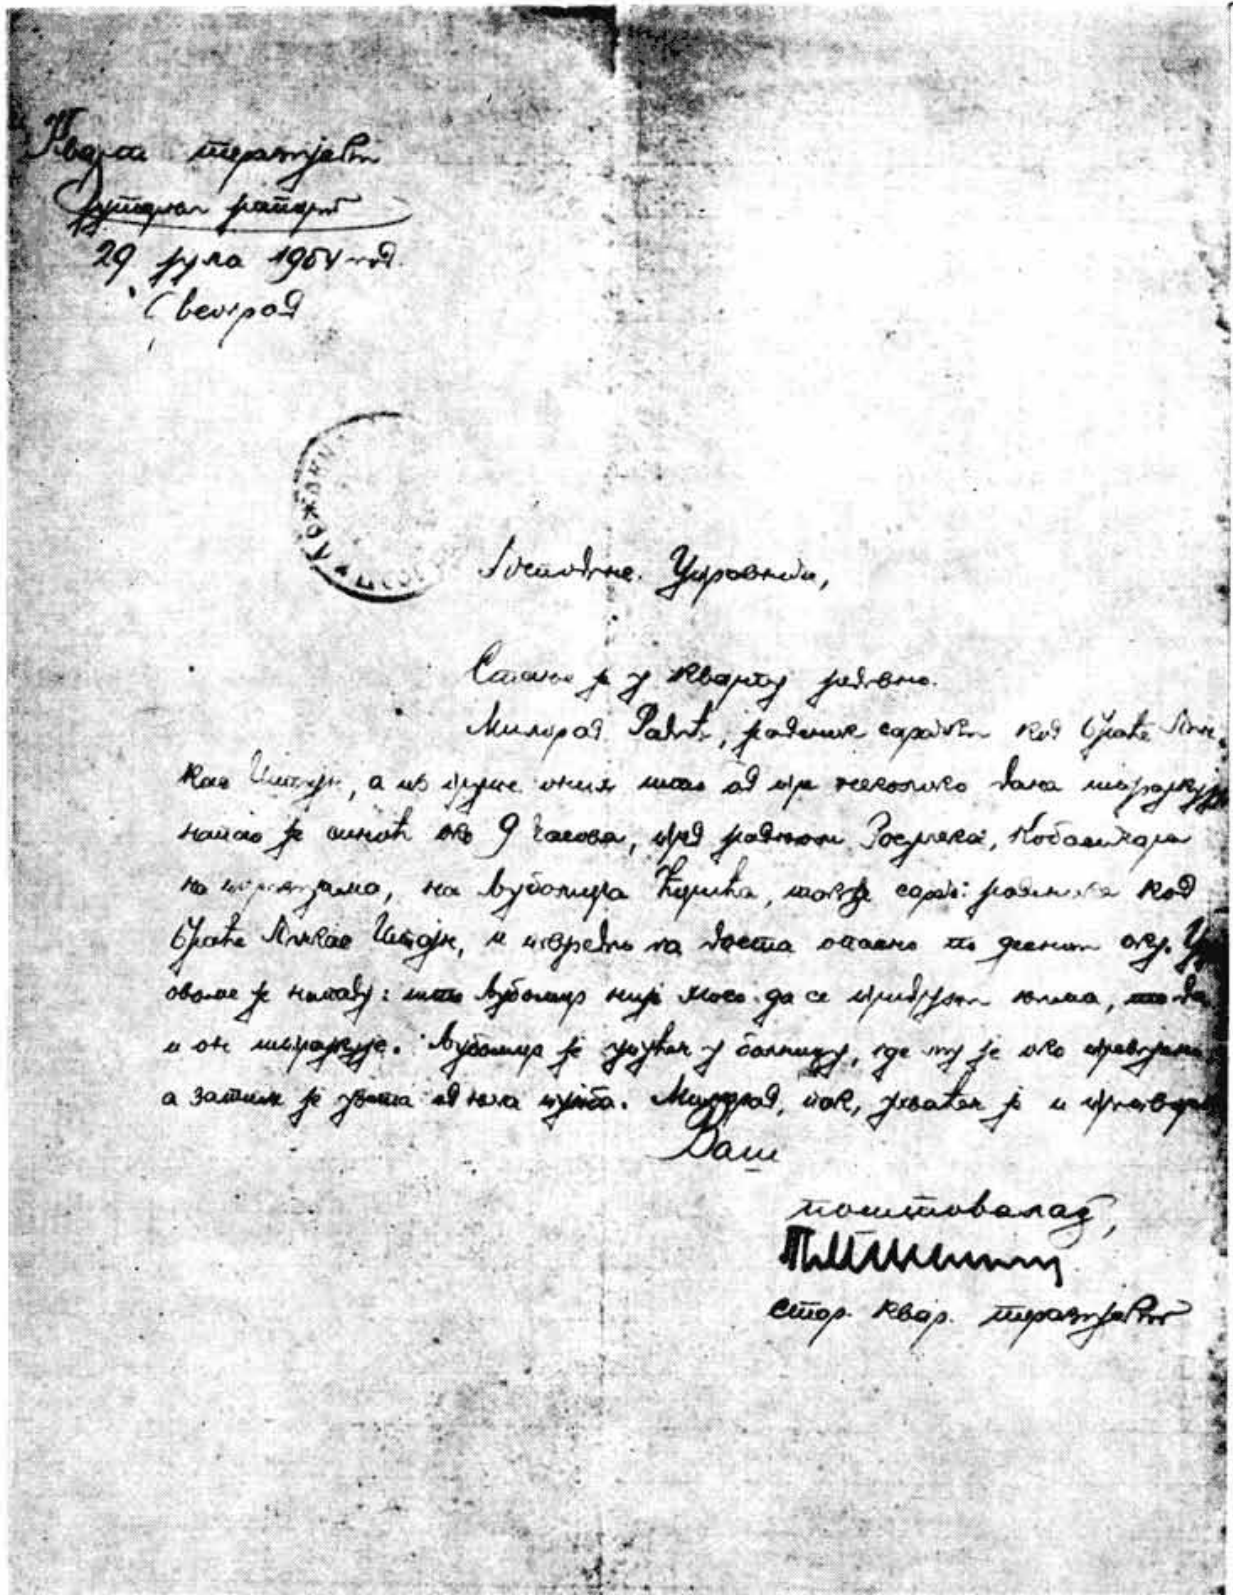 Кварт теразијски
Јутарњи рапорт
29 јула 1904 год.
Београд
Господине Управниче,
Стање је у кварту редовно.
Милорад Радић, раденик сарачки код браће
Штајн, а из групе оних што од пре неколико дана штрајкују
напао је синоћ око 9 часова, пред радњом
на теразијама, на Љубомира Ћирића, такође сарач. раденика код
браће Штајн, и повредио га доста опасно по десном оку.
овоме је нападу: што Љубомир није мого да се придружи њима, те да
и он штрајкује. Љубомир је упућен у болницу, где му је око превијено
а затим је узета од њега тужба. Милорад, пак, ухваћен је и
Ваш
поштовалац,
стар. квар. теразијског